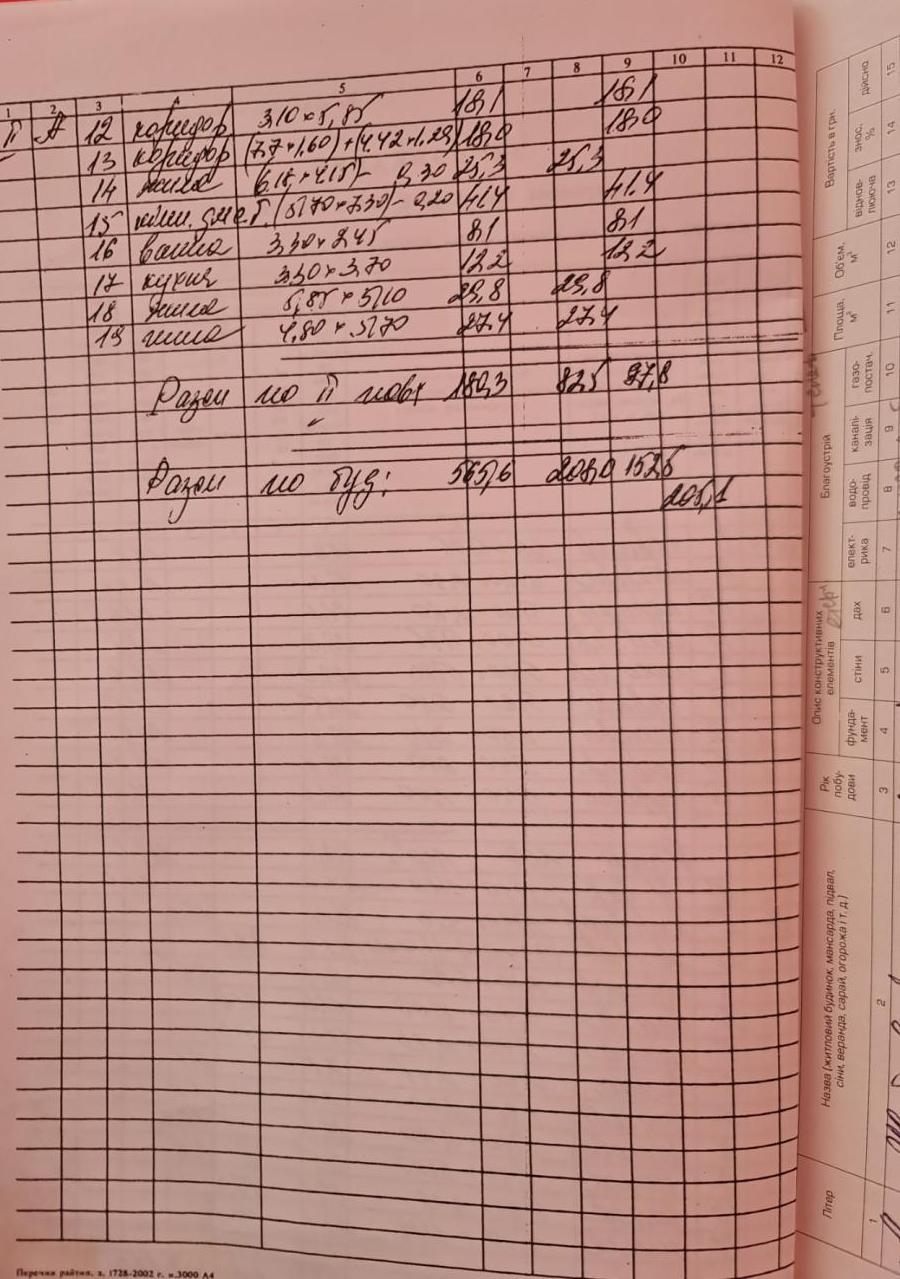 1 2 3 5 6 7 8 9 10 11 12
ІІ А 12 коридор 3,10 × 5,85 18,1 18,1
13 коридор (7,7 × 1,60) + (4,42 × 1,29) 18,0 18,0
14 жила (6,15 × 4,15) - 0,30 25,3 25,3
15 (5,70 × 7,30) - 0,20 41,4 41,4
16 ванна 3,30 × 2,45 8,1 8,1
17 кухня 3,30 × 3,70 12,2 12,2
18 жила 5,85 × 5,10 29,8 29,8
19 жила 4,80 × 5,70 27,4 27,4
Разом по ІІ повх 180,3 82,5 97,8
Разом по буд: 565,6 208,0 152,5
205,1
Перечин райтип. з. 1728-2002 г. н.3000 А4
Літер
Назва (житловий будинок, мансарда, підвал,
сіни, веранда, сарай, огорожа і т. д.)
Рік
побу-
дови
Опис конструктивних
елементів
фунда-
мент
стіни
дах
Благоустрій
елект-
рика
водо-
провід
каналі-
зація
газо-
постач.
Площа,
м²
Об'єм,
м³
Вартість в грн.
віднов-
лююча
знос,
%
дійсно
1 2 3 4 5 6 7 8 9 10 11 12 13 14 15